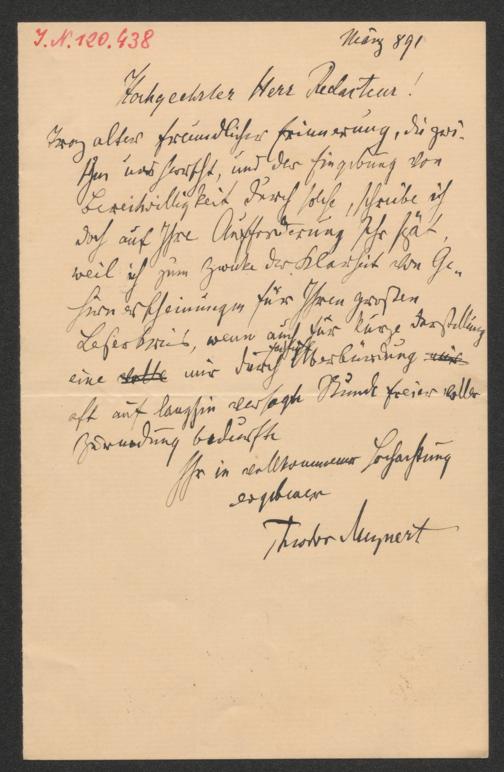 J.N.120.438
März 891
Hochgeehrter Herr Redacteur!
Troz alter freundlicher Erinnerung, die zwi-
schen uns herrscht, und der Eingebung von
Bereitwilligkeit durch solche, schreibe ich
doch auf Ihre Aufforderung sehr spät,
weil ich zum Zwecke der Klarheit von Ge-
hirnerscheinungen für Ihren großen
Leserkreis, wenn auch für kurze Darstellung
eine mir durch Überbürdung
oft auf langhin versagte Stunde freier voller
bedurfte
Ihr in vollkommener Hochachtung
ergebener
Theodor Meynert